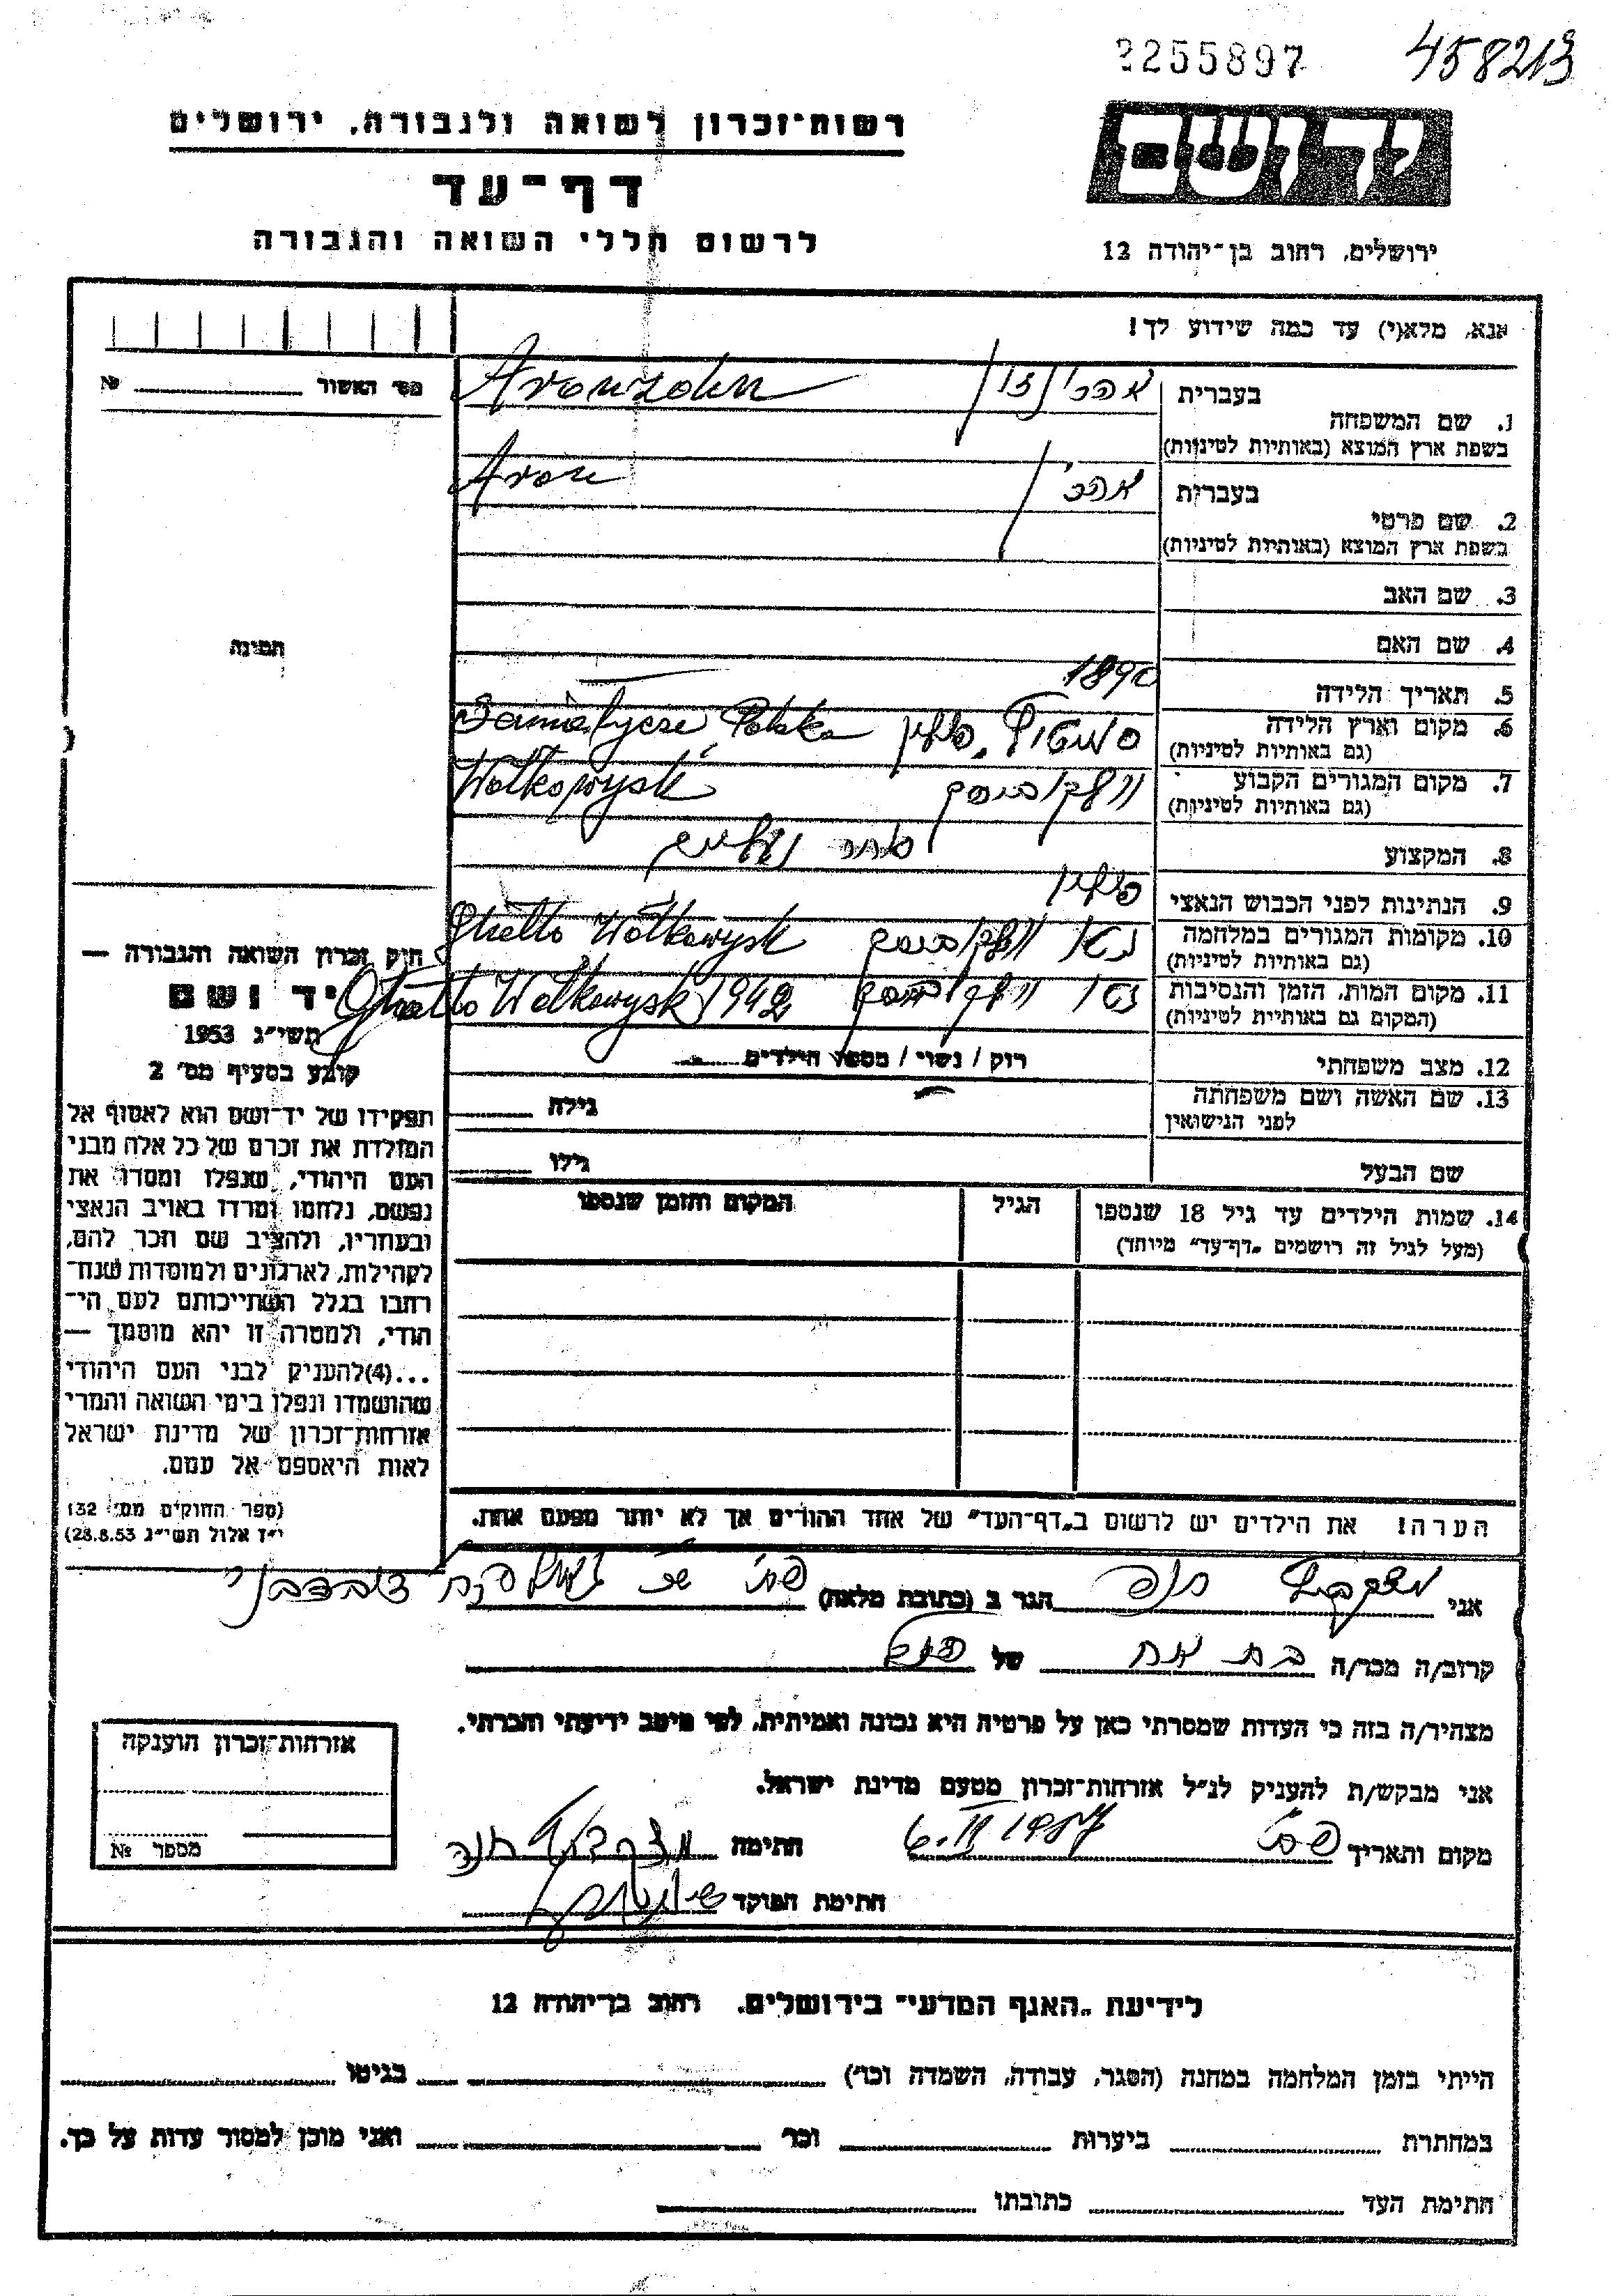 2255897 458213
רשות־זכרון לשואה ולגבורה, ירושלים
יד ושם
דף־עד
לרשום חללי השואה והגבורה
ירושלים, רחוב בן־יהודה 12
אנא, מלא(י) עד כמה שידוע לך!
מס׳ האשור № 
1. שם המשפחה בעברית
Aronzohn
בשפת ארץ המוצא (באותיות לטיניות)
2. שם פרטי בעברית
Aron
בשפת ארץ המוצא (באותיות לטיניות)
3. שם האב
4. שם האם
תמונה
5. תאריך הלידה 1890
6. מקום וארץ הלידה פולין Polska
(גם באותיות לטיניות)
7. מקום המגורים הקבוע Wołkowysk
(גם באותיות לטיניות)
8. המקצוע סוחר
9. הנתינות לפני הכבוש הנאצי פולין
10. מקומות המגורים במלחמה גטו Ghetto Wołkowysk
(גם באותיות לטיניות)
11. מקום המות, הזמן והנסיבות גטו Ghetto Wołkowysk 1942
(המקום גם באותיות לטיניות)
12. מצב משפחתי רוק / נשוי / מספר הילדים
13. שם האשה ושם משפחתה גילה
לפני הנישואין
שם הבעל גילו
14. שמות הילדים עד גיל 18 שנספו הגיל המקום והזמן שנספו
(מעל לגיל זה רושמים „דף־עד״ מיוחד)
הערה! את הילדים יש לרשום ב„דף־העד״ של אחד ההורים אך לא יותר מפעם אחת.
חוק זכרון השואה והגבורה —
יד ושם
תשי״ג 1953
קובע בסעיף מס׳ 2
תפקידו של יד־ושם הוא לאסוף אל
המולדת את זכרם של כל אלה מבני
העם היהודי, שנפלו ומסרו את
נפשם, נלחמו ומרדו באויב הנאצי
ובעוזריו, ולהציב שם וזכר להם,
לקהילות, לארגונים ולמוסדות שנח־
רבו בגלל השתייכותם לעם הי־
הודי, ולמטרה זו יהא מוסמך —
...(4)להעניק לבני העם היהודי
שהושמדו ונפלו בימי השואה והמרי
אזרחות־זכרון של מדינת ישראל
לאות היאספם אל עמם.
(ספר החוקים מס׳ 132
י״ז אלול תשי״ג 28.8.53)
אני חנה הגר ב (כתובת מלאה)
קרוב/ה מכר/ה בת אח של
מצהיר/ה בזה כי העדות שמסרתי כאן על פרטיה היא נכונה ואמיתית, לפי מיטב ידיעתי והכרתי.
אני מבקש/ת להעניק לנ״ל אזרחות־זכרון מטעם מדינת ישראל.
מקום ותאריך 1957 חתימה חנה
חתימת הפוקד
אזרחות־זכרון הוענקה
מספר №
לידיעת „האגף המדעי״ בירושלים, רחוב בן־יהודה 12
הייתי בזמן המלחמה במחנה (הסגר, עבודה, השמדה וכו׳) בגיטו
במחתרת ביערות וכו׳ ואני מוכן למסור עדות על כך.
חתימת העד כתובתו